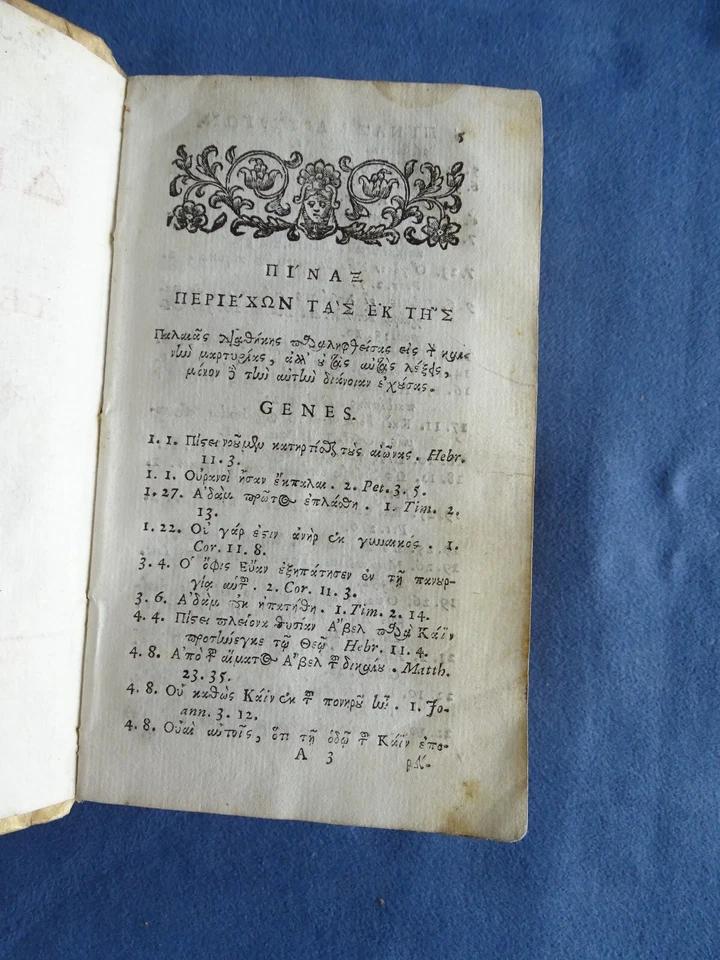 5
ΠΙ´ΝΑΞ
ΠΕΡΙΕ´ΧΩΝ ΤΑ`Σ ΕΚ ΤΗ͂Σ
Παλαιᾶς Διαθήκης παραληφθείσας εἰς τὴν
νὴν μαρτυρίας, ἀλλ' οὐ τὰς αὐτὰς λέξεις,
μόνον δὲ τὴν αὐτὴν διάνοιαν ἐχούσας.
GENES.
1. 1. Πίςει νοοῦμεν κατηρτίσθαι τοὺς αἰῶνας. Hebr.
11. 3.
1. 1. Οὐρανοὶ ἦσαν ἔκπαλαι. 2. Pet. 3. 5.
1. 27. Α᾿δὰμ πρῶτος ἐπλάσθη. 1. Tim. 2.
13.
1. 22. Οὐ γάρ ἐςιν ἀνὴρ ἐκ γυναικός. 1.
Cor. 11. 8.
3. 4. Ο῾ ὄφις Εὔαν ἐξηπάτησεν ἐν τῇ πανουρ-
γίᾳ αὑτοῦ. 2. Cor. 11. 3.
3. 6. Α᾿δὰμ οὐκ ἠπατήθη. 1. Tim. 2. 14.
4. 4. Πίςει πλείονα θυσίαν Α῎βελ παρὰ Κάϊν
προσήνεγκε τῷ Θεῷ. Hebr. 11. 4.
4. 8. Α᾿πὸ τοῦ αἵματος Α῎βελ τοῦ δικαίου. Matth.
23. 35.
4. 8. Οὐ καθὼς Κάϊν ἐκ τοῦ πονηροῦ ἦν. 1. Jo-
ann. 3. 12.
4. 8. Οὐαὶ αὐτοῖς, ὅτι τῇ ὁδῷ τοῦ Κάϊν ἐπο-
A 3